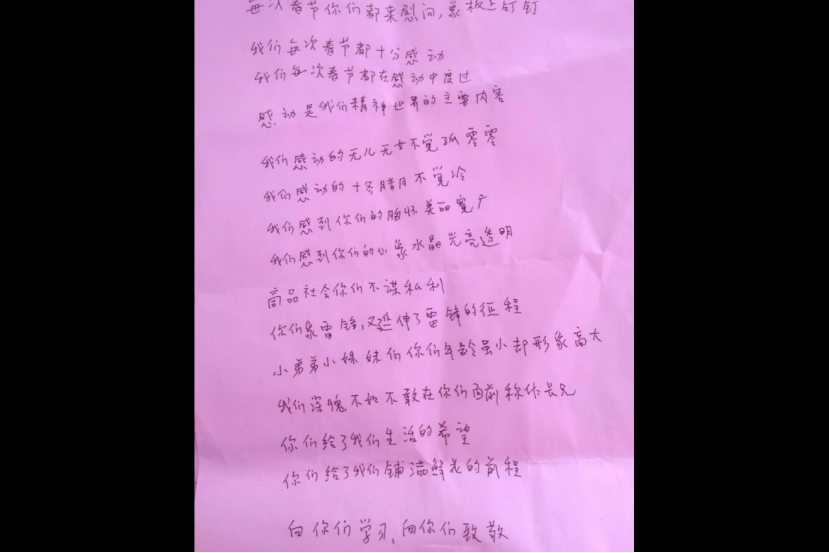 每次春节你们都来慰问,象板上钉钉
我们每次春节都十分感动
我们每次春节都在感动中度过
感动是我们精神世界的主要内容
我们感动的无儿无女不觉孤零零
我们感动的十冬腊月不觉冷
我们感到你们的胸怀美丽宽广
我们感到你们的心象水晶光亮透明
商品社会你们不谋私利
你们象雷锋,又延伸了雷锋的征程
小弟弟小妹妹们你们年龄虽小却形象高大
我们深愧不如不敢在你们面前称作长兄
你们给了我们生活的希望
你们给了我们铺满鲜花的前程
向你们学习、向你们致敬